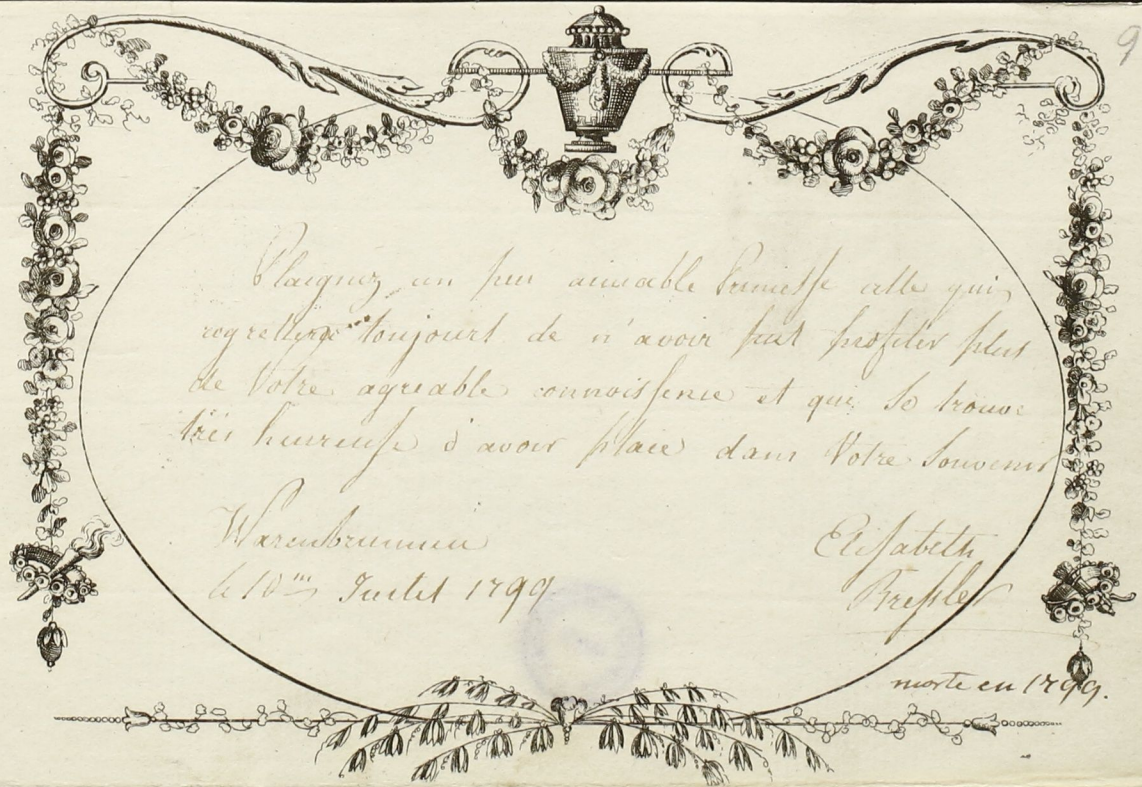 9
Plaignez un peu aimable Princesse celle qui
regrettera toujours de n'avoir put profiter plus
de Votre agreable connoissence et qui se trouve
très heureuse d'avoir place dans Votre Souvenir
Warenbrunnen
le 10me Juilet 1799
Elisabeth
Bressler
morte en 1799.